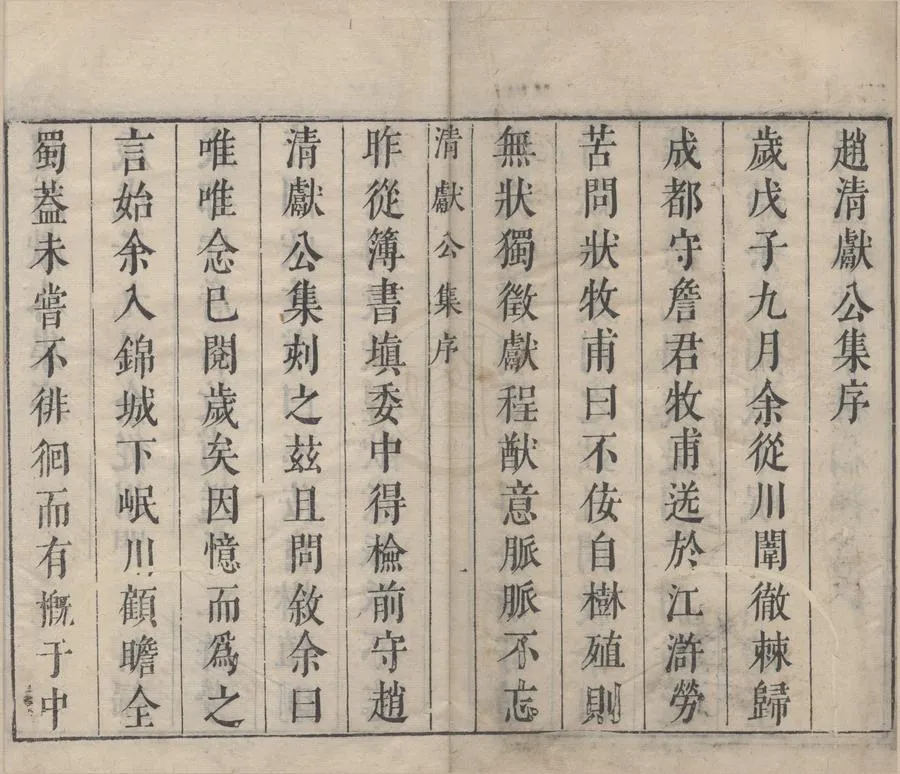 趙清獻公集序
歲戊子九月余從川闈徹棘歸
成都守詹君牧甫送於江滸勞
苦問狀牧甫曰不佞自樹殖則
無狀獨徵獻程猷意脈脈不忘
清獻公集序
昨從簿書塡委中得檢前守趙
清獻公集刻之茲且問敘余曰
唯唯念已閱歲矣因憶而爲之
言始余入錦城下岷川顧瞻全
蜀蓋未嘗不徘徊而有慨于中